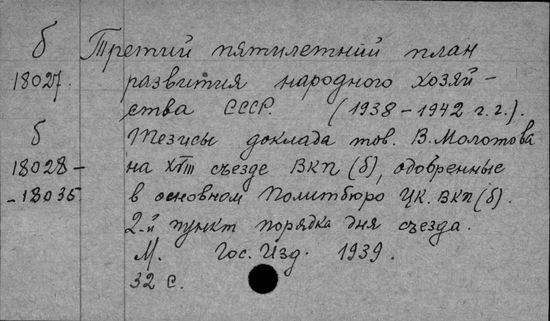 б Третий пятилетний план
18027. развития народного хозяй-
ства СССР. (1938-1942 г.г.).
б Тезисы доклада тов. В. Молотова
18028- на съезде ВКП (б), одобренные
-18035 в основном Политбюро ЦК. ВКП (б).
2-й пункт порядка дня съезда.
М. Гос. Изд. 1939.
32 с.